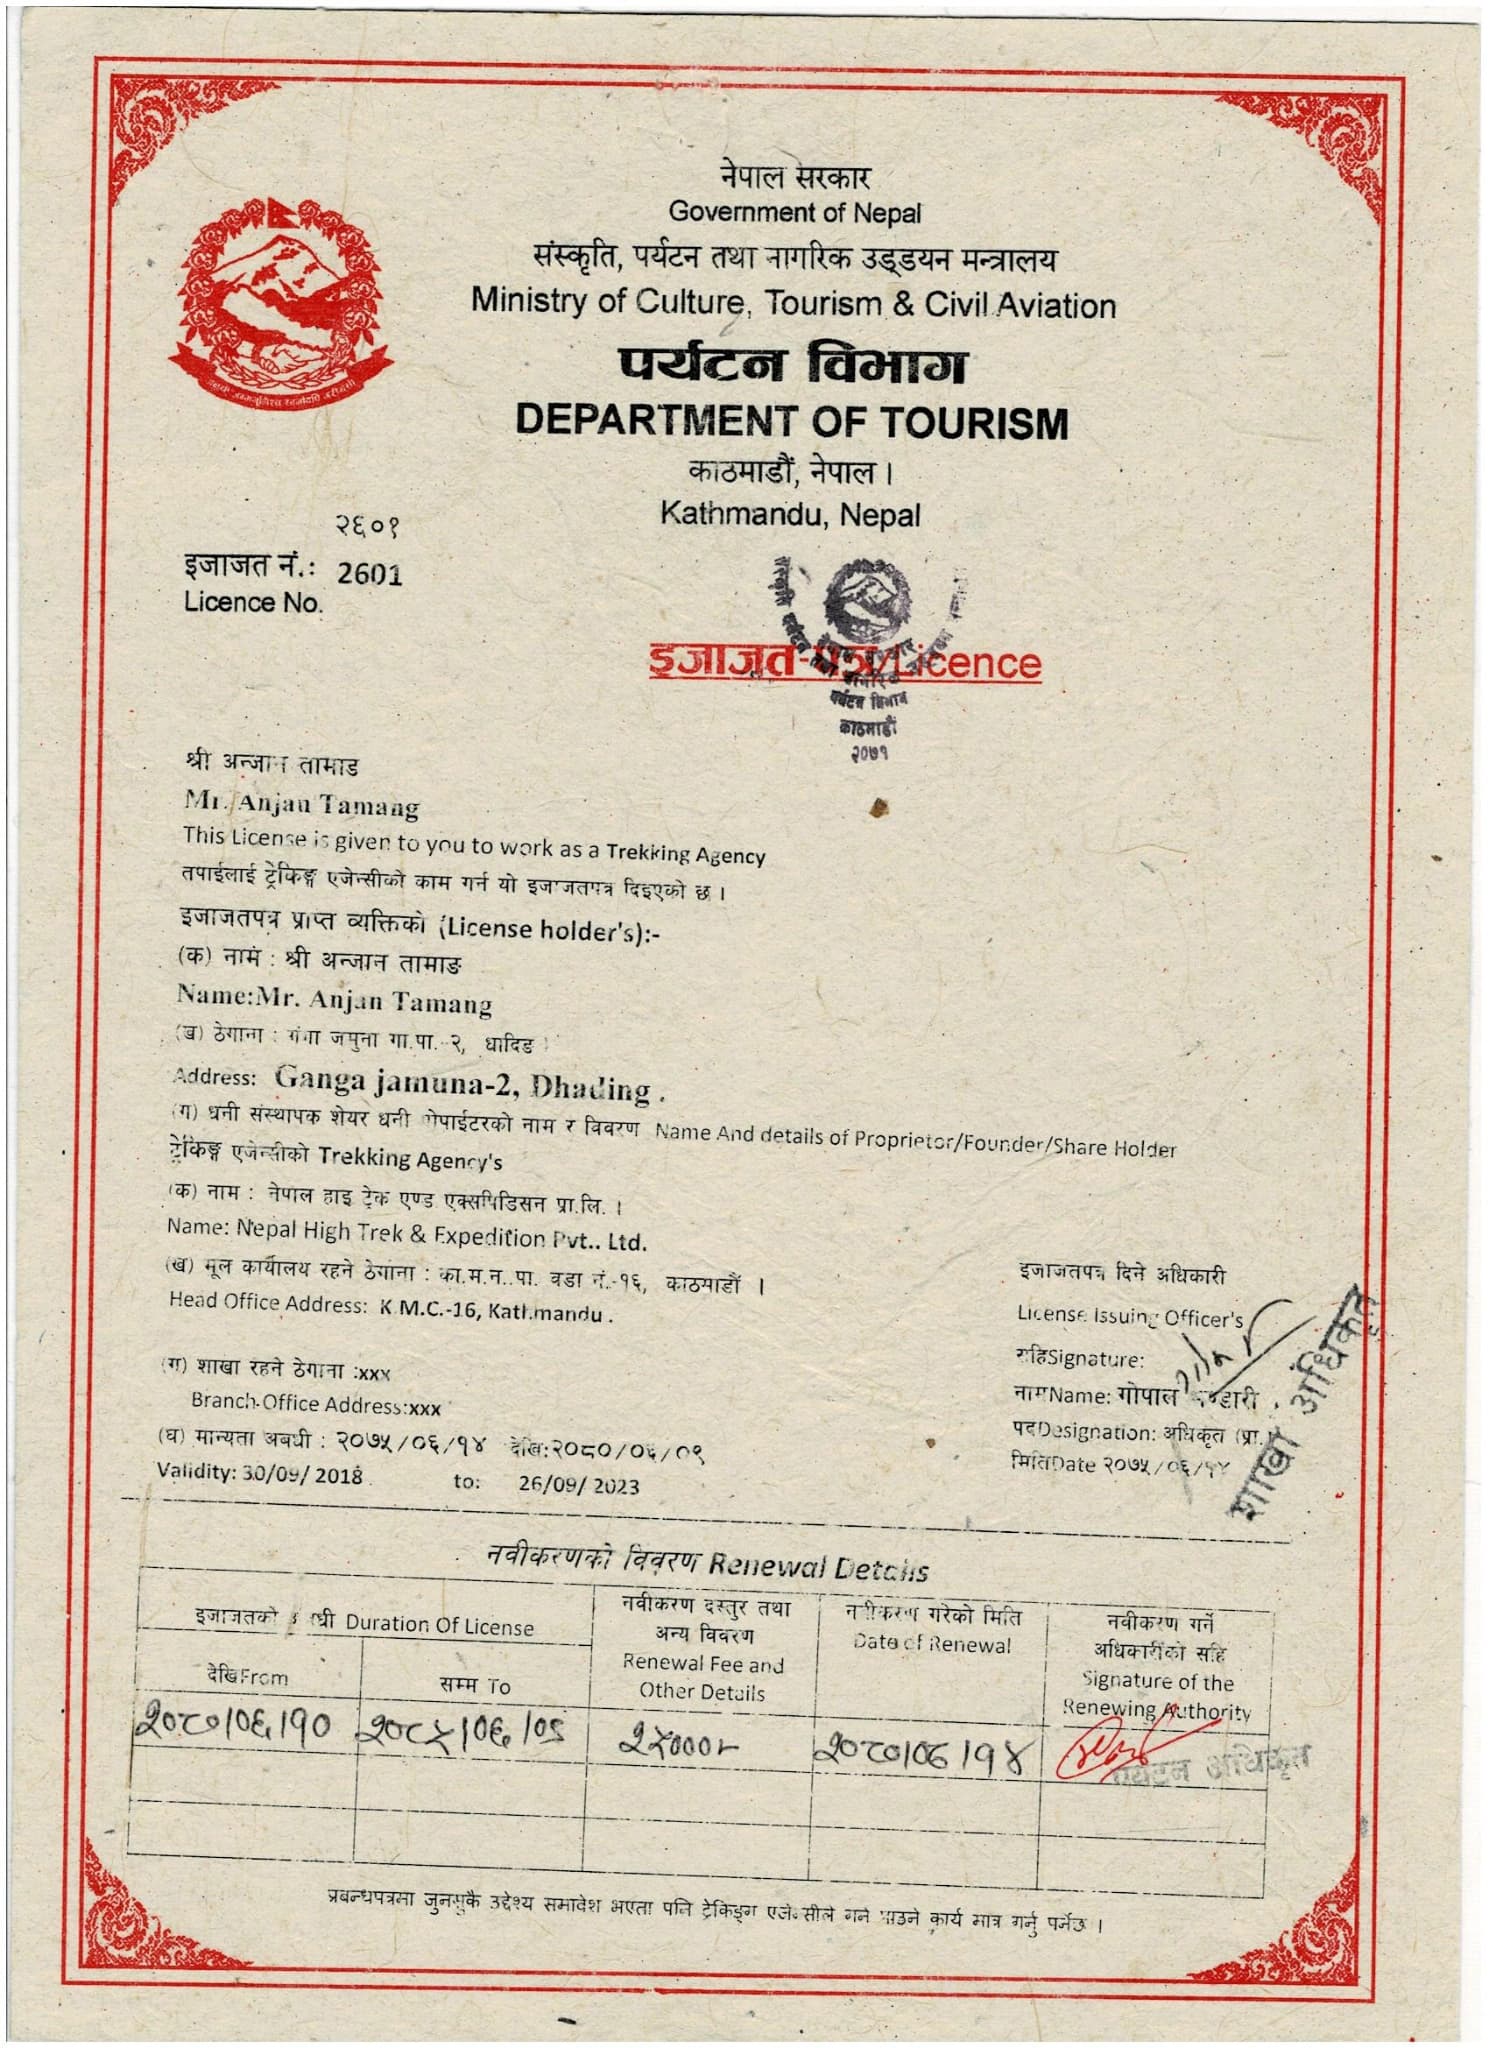 नेपाल सरकार
Government of Nepal
संस्कृति, पर्यटन तथा नागरिक उड्डयन मन्त्रालय
Ministry of Culture, Tourism & Civil Aviation
पर्यटन विभाग
DEPARTMENT OF TOURISM
काठमाडौं, नेपाल ।
Kathmandu, Nepal
२६०१
इजाजत नं.: 2601
Licence No.
इजाजत-पत्र/Licence
पर्यटन विभाग
काठमाडौं
२०७१
श्री अन्जान तामाड
Mr. Anjan Tamang
This License is given to you to work as a Trekking Agency
तपाईलाई ट्रेकिङ्ग एजेन्सीको काम गर्न यो इजाजतपत्र दिइएको छ ।
इजाजतपत्र प्राप्त व्यक्तिको (License holder's):-
(क) नामं : श्री अन्जान तामाङ
Name:Mr. Anjan Tamang
(ख) ठेगाना : गंगा जमुना गा.पा.-२, धादिङ
Address: Ganga jamuna-2, Dhading .
(ग) धनी संस्थापक शेयर धनी प्रोपाईटरको नाम र विवरण Name And details of Proprietor/Founder/Share Holder
ट्रेकिङ्ग एजेन्सीको Trekking Agency's
(क) नाम : नेपाल हाइ ट्रेक एण्ड एक्सपिडिसन प्रा.लि. ।
Name: Nepal High Trek & Expedition Pvt.. Ltd.
(ख) मूल कार्यालय रहने ठेगाना : का.म.न..पा. वडा नं.-१६, काठमाडौं ।
Head Office Address: K.M.C.-16, Kathmandu .
(ग) शाखा रहने ठेगाना :xxx
Branch Office Address:xxx
(घ) मान्यता अबधी : २०७५/०६/१४ देखि:२०८०/०६/०९
Validity: 30/09/ 2018 to: 26/09/ 2023
इजाजतपत्र दिने अधिकारी
License Issuing Officer's
सहिSignature:
नामName: गोपाल भण्डारी .
पदDesignation: अधिकृत (प्रा.)
मितिDate २०७५/०६/१४
शाखा अधिकृत
नवीकरणको विवरण Renewal Details
इजाजतको अवधी Duration Of License
देखिFrom
सम्म To
नवीकरण दस्तुर तथा
अन्य विवरण
Renewal Fee and
Other Details
नवीकरण गरेको मिति
Date of Renewal
नवीकरण गर्ने
अधिकारीको सहि
Signature of the
Renewing Authority
२०८०/०६/१०
२०८५/०६/०९
२०८०/०६/१४
पर्यटन अधिकृत
प्रबन्धपत्रमा जुनसुकै उद्देश्य समावेश भएता पनि ट्रेकिङ्ग एजेन्सीले गर्न पाउने कार्य मात्र गर्नु पर्नेछ ।